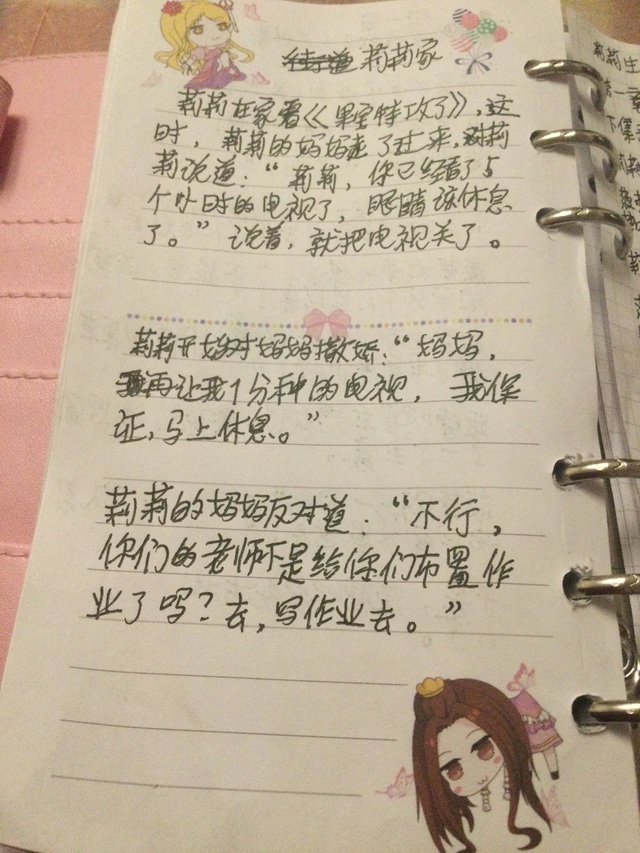 莉莉家
莉莉在家看《果宝特攻了》,这
时,莉莉的妈妈走了过来,对莉
莉说道:“莉莉,你已经看了5
个小时的电视了,眼睛该休息
了。”说着,就把电视关了。
莉莉开始对妈妈撒娇:“妈妈,
再让我1分种的电视,我保
证,马上休息。”
莉莉的妈妈反对道:“不行,
你们的老师不是给你们布置作
业了吗?去,写作业去。”
莉莉生